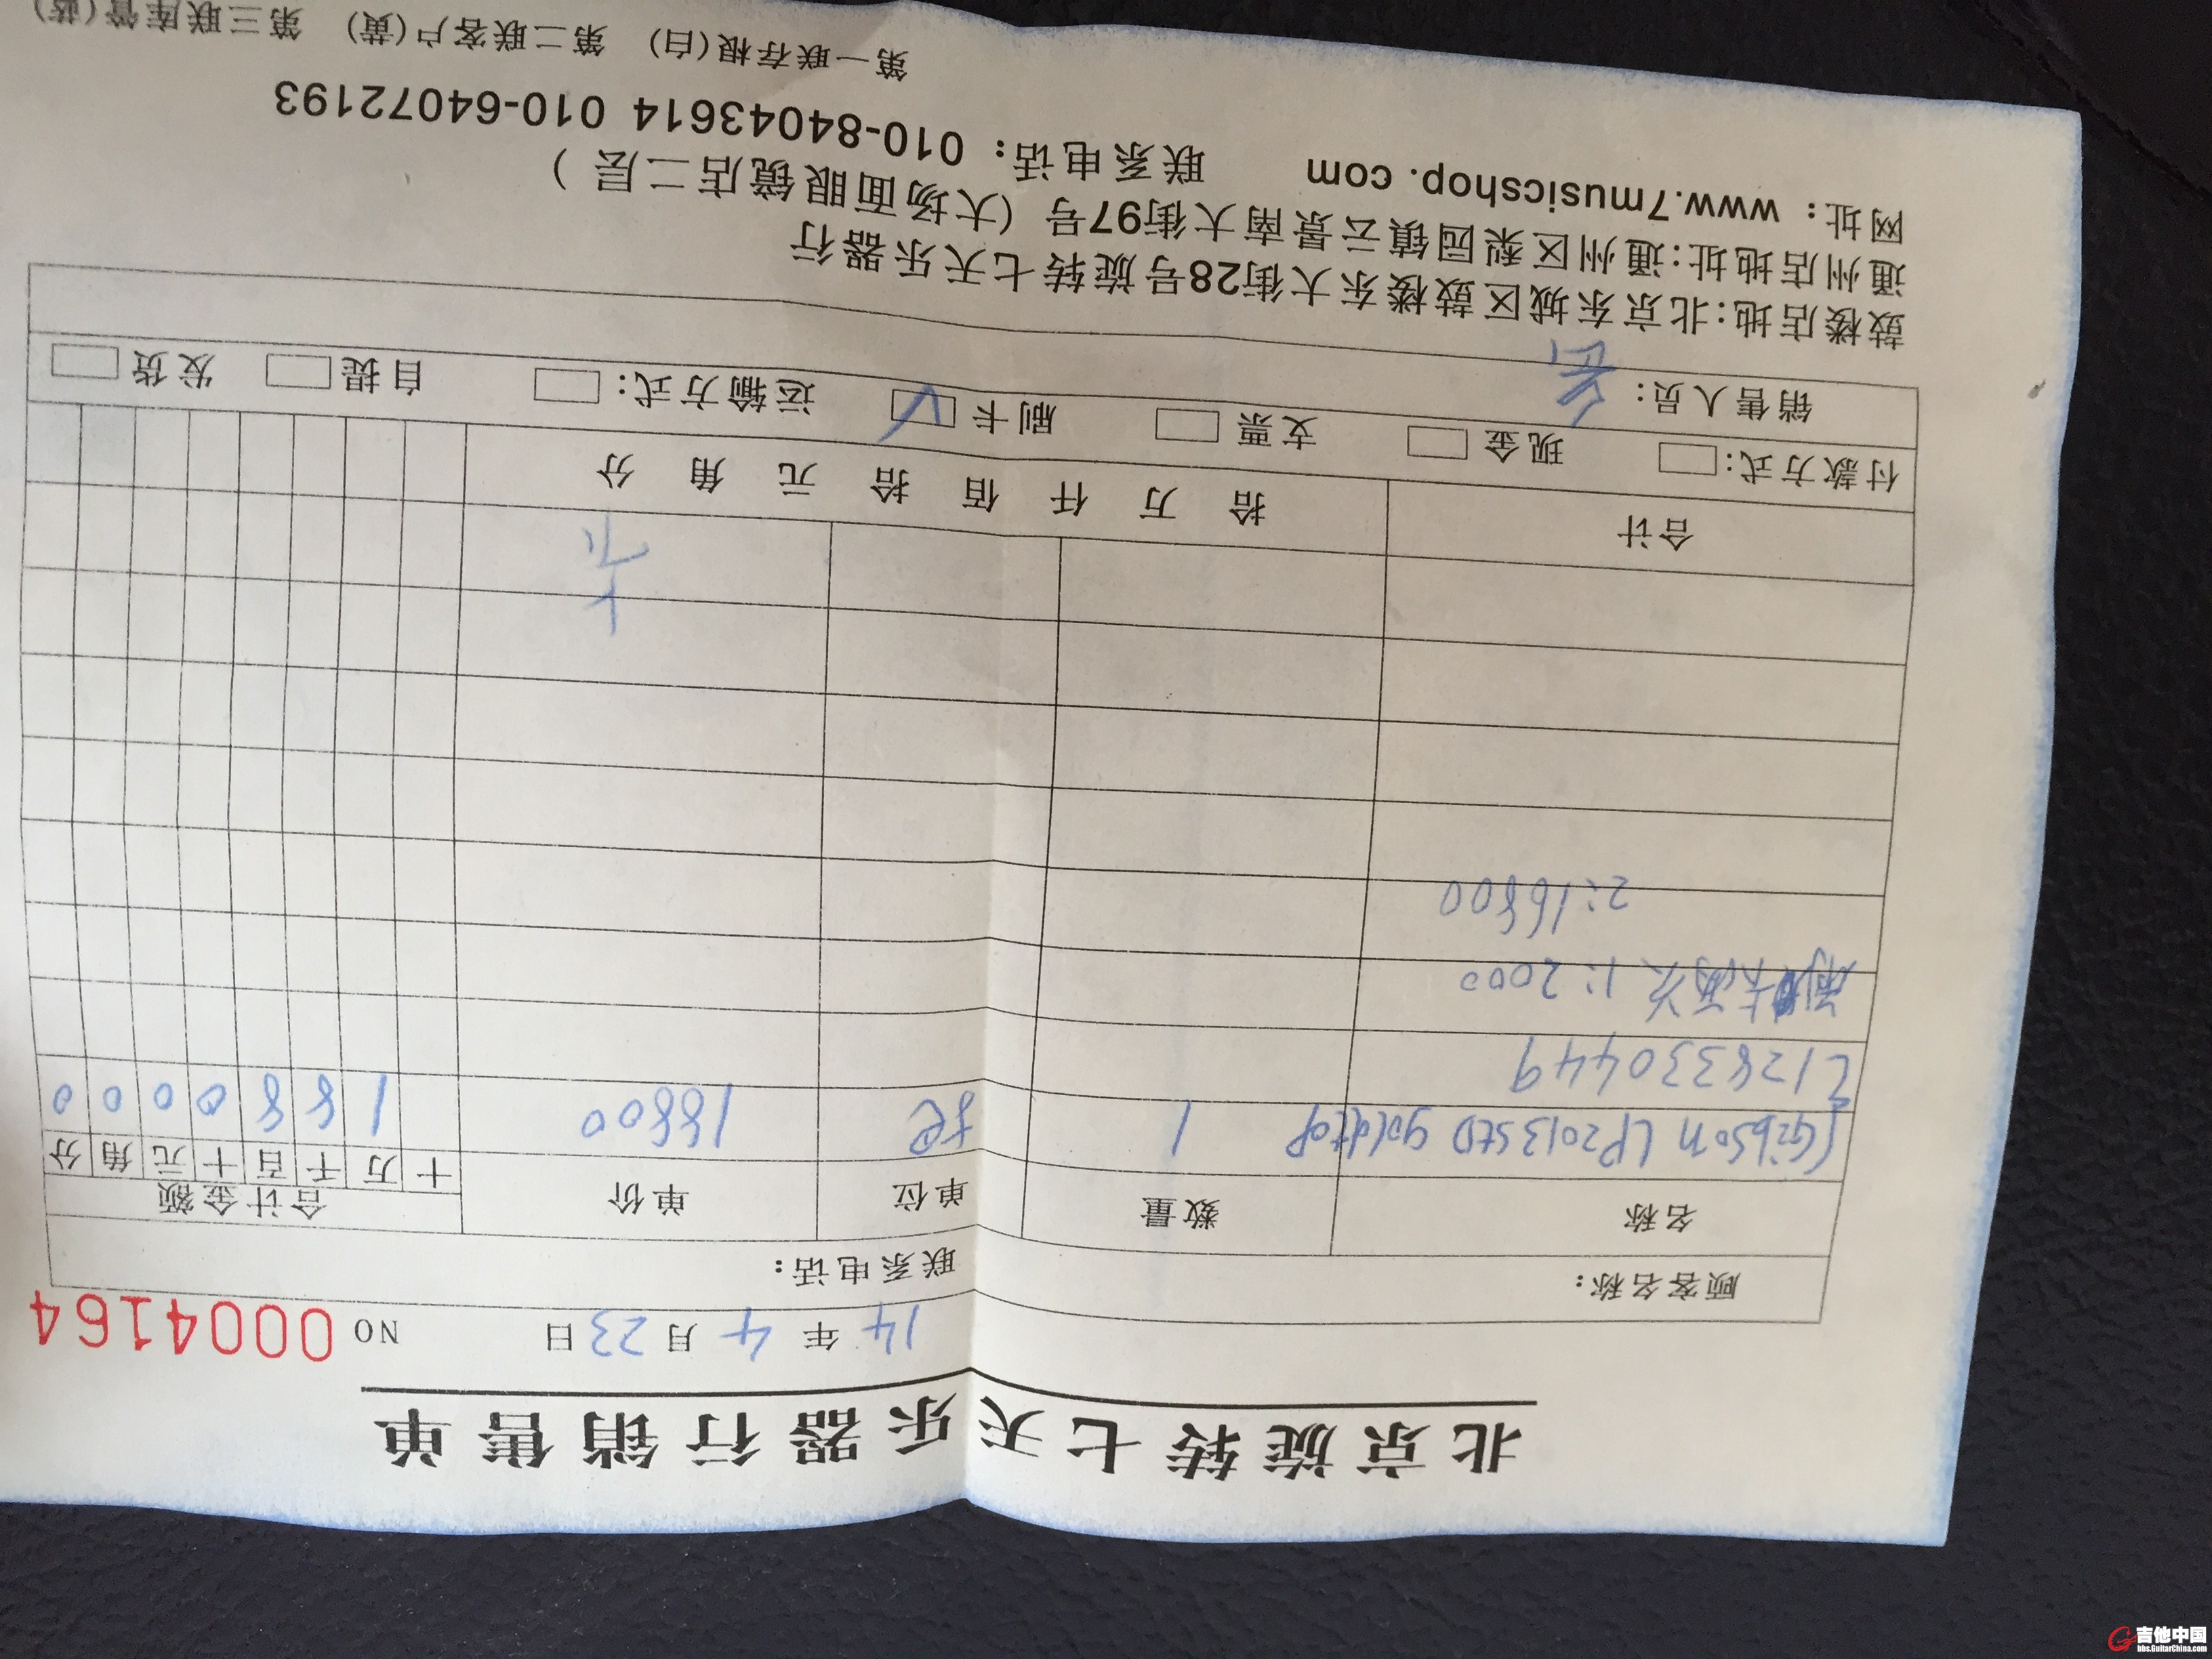 北京旋转七天乐器行销售单
14年4月23日 NO 0004164
顾客名称: 联系电话:
名称 数量 单位 单价 合计金额
十万千百十元角分
Gibson LP2013 STD goldtop 1 把 18800 1 8 8 0 0 0 0
刷卡两次 1:2000
2:16800
合计 拾 万 仟 佰 拾 元 角 分
付款方式: 现金 支票 刷卡 运输方式: 自提 发货
销售人员:
鼓楼店地:北京东城区鼓楼东大街28号旋转七天乐器行
通州店地址:通州区梨园镇云景南大街97号(大场面眼镜店二层)
网址: www.7musicshop.com 联系电话: 010-84043614 010-64072193
第一联存根(白) 第二联客户(黄) 第三联库管(蓝)
吉他中国
bbs.GuitarChina.com